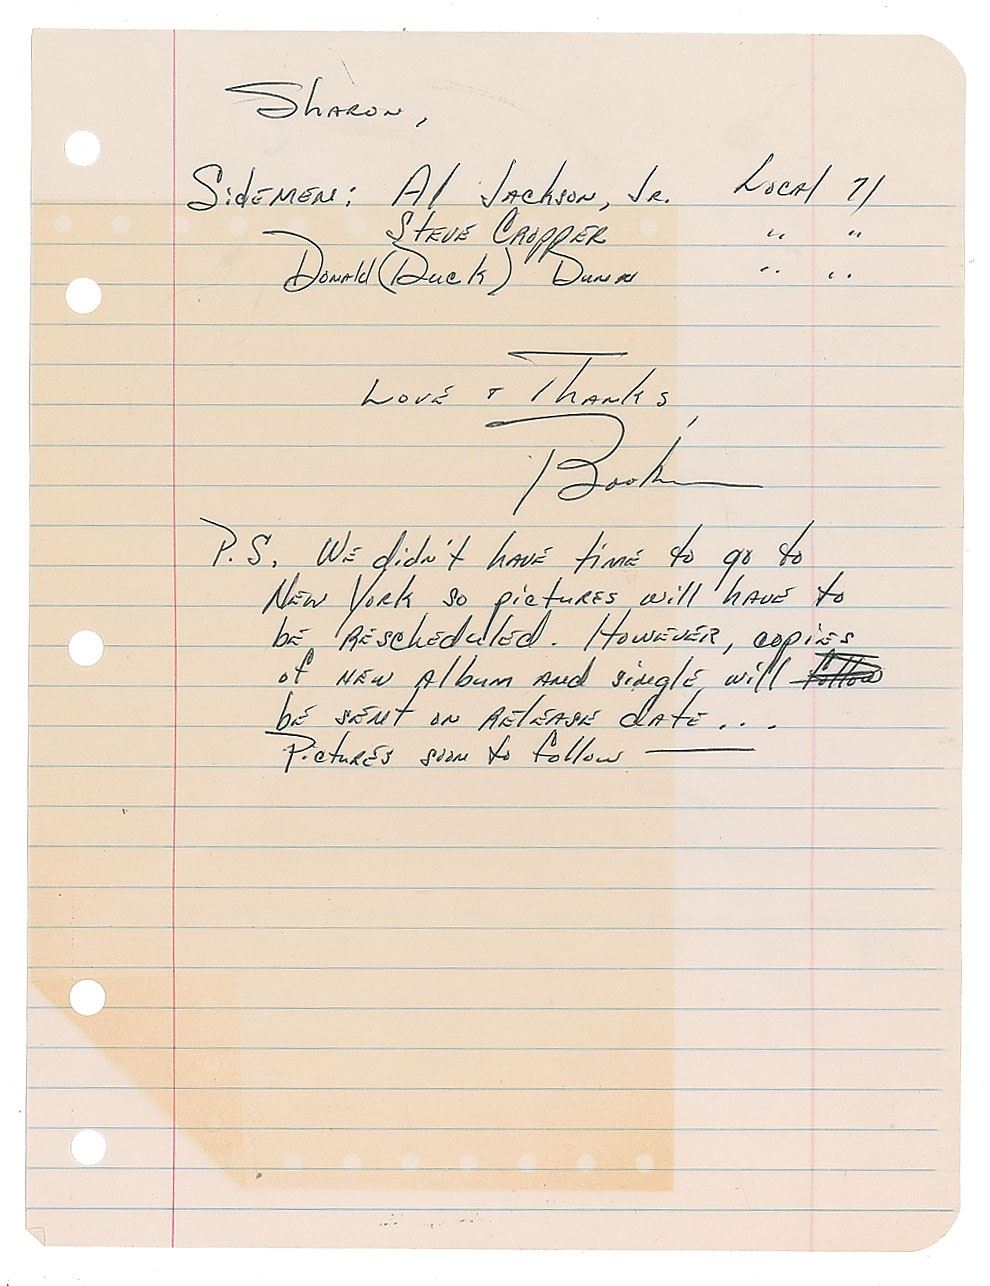 Sharon,
Sidemen: Al Jackson, Jr. Local 71
Steve Cropper " "
Donald (Duck) Dunn " "
Love + Thanks,
Booker
P.S. We didn't have time to go to
New York so pictures will have to
be rescheduled. However, copies
of new album and single will follow
be sent on release date...
Pictures soon to follow —